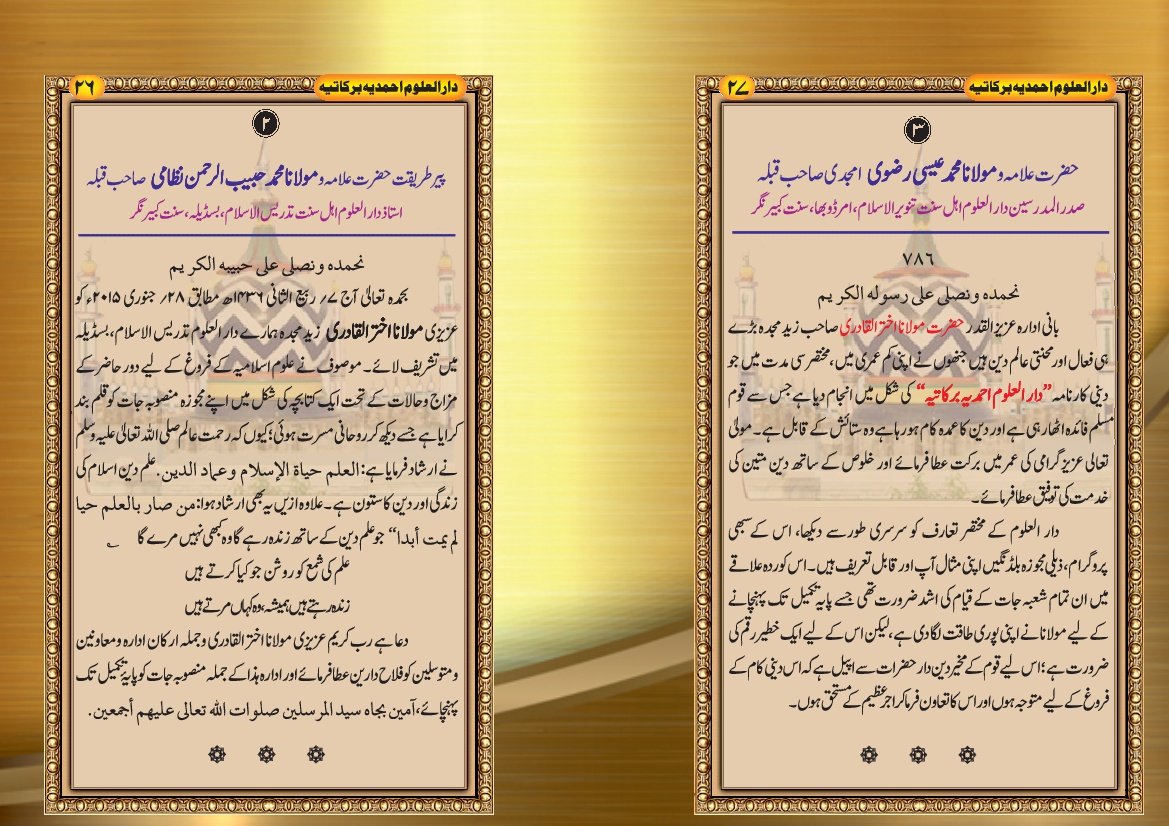 دارالعلوم احمدیہ برکاتیہ
۲۶
۲
پیر طریقت حضرت علامہ و مولانا محمد حبیب الرحمن نظامی صاحب قبلہ
استاذ دارالعلوم اہل سنت تدریس الاسلام، بسڈیلہ، سنت کبیر نگر
نحمدہ ونصلی علی حبیبہ الکریم
بحمدہ تعالیٰ آج ۷؍ ربیع الثانی ۱۴۳۶ھ مطابق ۲۸؍ جنوری ۲۰۱۵ء کو
عزیزی مولانا اختر القادری زید مجدہ ہمارے دارالعلوم تدریس الاسلام، بسڈیلہ
میں تشریف لائے۔ موصوف نے علوم اسلامیہ کے فروغ کے لیے دور حاضر کے
مزاج و حالات کے تحت ایک کتابچہ کی شکل میں اپنے مجوزہ منصوبہ جات کو قلم بند
کرایا ہے جسے دیکھ کر روحانی مسرت ہوئی؛ کیوں کہ رحمت عالم صلی اللہ تعالیٰ علیہ وسلم
نے ارشاد فرمایا ہے: العلم حياة الإسلام وعماد الدين. علم دین اسلام کی
زندگی اور دین کا ستون ہے۔ علاوہ ازیں یہ بھی ارشاد ہوا: من صار بالعلم حيا
لم يمت أبدا“ جو علم دین کے ساتھ زندہ رہے گا وہ کبھی نہیں مرے گا ؎
علم کی شمع کو روشن جو کیا کرتے ہیں
زندہ رہتے ہیں ہمیشہ، وہ کہاں مرتے ہیں
دعا ہے رب کریم عزیزی مولانا اختر القادری و جملہ ارکان ادارہ و معاونین
و متوسلین کو فلاح دارین عطا فرمائے اور ادارہ ہذا کے جملہ منصوبہ جات کو پایۂ تکمیل تک
پہنچائے، آمين بجاه سيد المرسلين صلوات الله تعالى عليهم أجمعين.
دارالعلوم احمدیہ برکاتیہ
۲۷
۳
حضرت علامہ و مولانا محمد عیسیٰ رضوی امجدی صاحب قبلہ
صدر المدرسین دارالعلوم اہل سنت تنویر الاسلام، امرڈوبھا، سنت کبیر نگر
۷۸۶
نحمدہ ونصلی علی رسولہ الکریم
بانی ادارہ عزیز القدر حضرت مولانا اختر القادری صاحب زید مجدہ بڑے
ہی فعال اور محنتی عالم دین ہیں جنھوں نے اپنی کم عمری میں، مختصر سی مدت میں جو
دینی کارنامہ ”دارالعلوم احمدیہ برکاتیہ“ کی شکل میں انجام دیا ہے جس سے قوم
مسلم فائدہ اٹھا رہی ہے اور دین کا عمدہ کام ہو رہا ہے وہ ستائش کے قابل ہے۔ مولیٰ
تعالیٰ عزیز گرامی کی عمر میں برکت عطا فرمائے اور خلوص کے ساتھ دین متین کی
خدمت کی توفیق عطا فرمائے۔
دار العلوم کے مختصر تعارف کو سرسری طور سے دیکھا، اس کے سبھی
پروگرام، ذیلی مجوزہ بلڈنگیں اپنی مثال آپ اور قابل تعریف ہیں۔ اس کوردہ علاقے
میں ان تمام شعبہ جات کے قیام کی اشد ضرورت تھی جسے پایہ تکمیل تک پہنچانے
کے لیے مولانا نے اپنی پوری طاقت لگا دی ہے، لیکن اس کے لیے ایک خطیر رقم کی
ضرورت ہے؛ اس لیے قوم کے مخیر دین دار حضرات سے اپیل ہے کہ اس دینی کام کے
فروغ کے لیے متوجہ ہوں اور اس کا تعاون فرما کر اجر عظیم کے مستحق ہوں۔